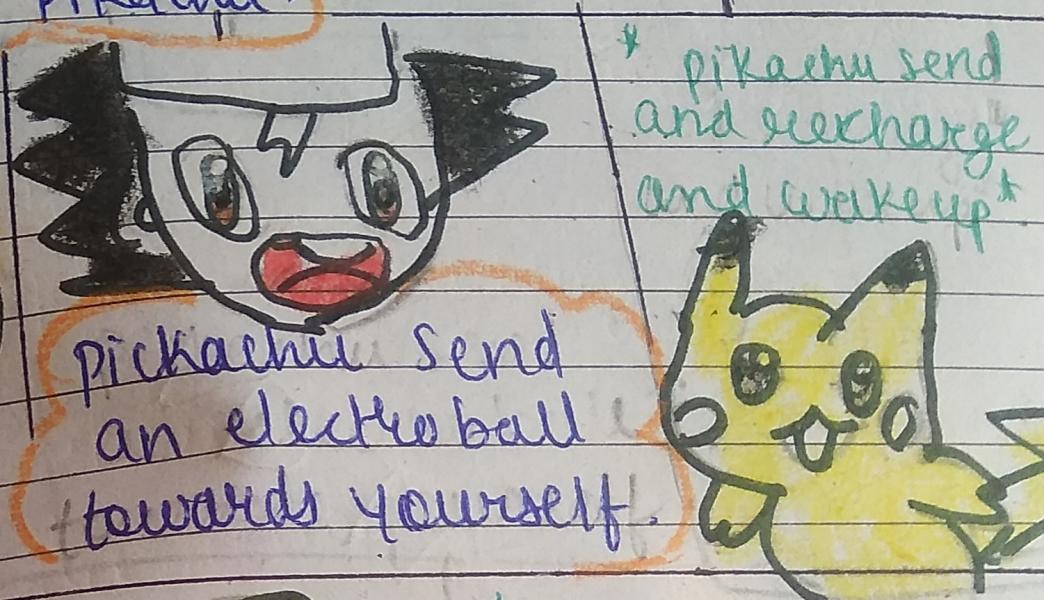 pickachu send
an electroball
towards yourself.
* pikachu send
and recharge
and wakeup*